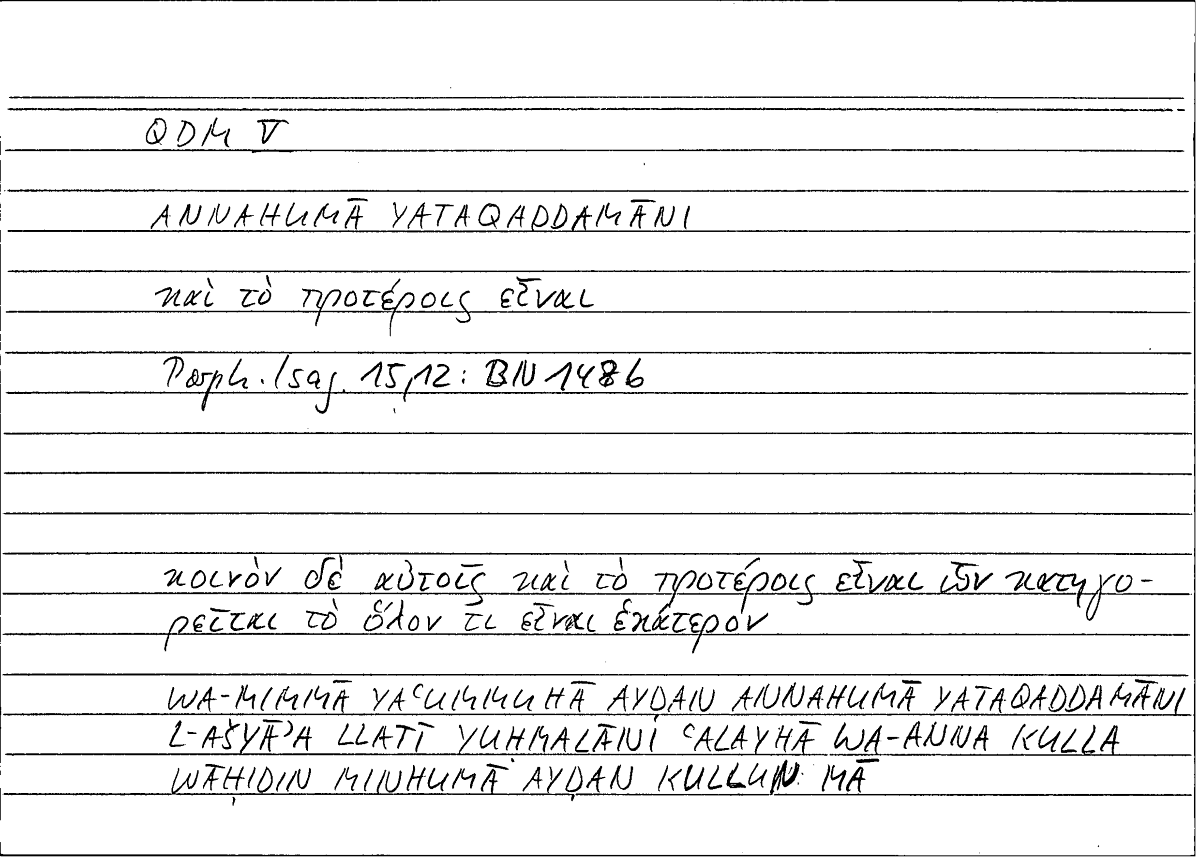 QDM V
ANNAHUMĀ YATAQADDAMĀNI
καὶ τὸ προτέροις εἶναι
Porph. Isag. 15,12: BN 148b
κοινὸν δὲ αὐτοῖς καὶ τὸ προτέροις εἶναι ὧν κατηγο-
ρεῖται τὸ ὅλον τι εἶναι ἑκάτερον
WA-MIMMĀ YAʿUMMUHĀ AYḌAN ANNAHUMĀ YATAQADDAMĀNI
L-AŠYĀʾA LLATĪ YUḤMALĀNI ʿALAYHĀ WA-ANNA KULLA
WĀḤIDIN MINHUMĀ AYḌAN KULLUN MĀ